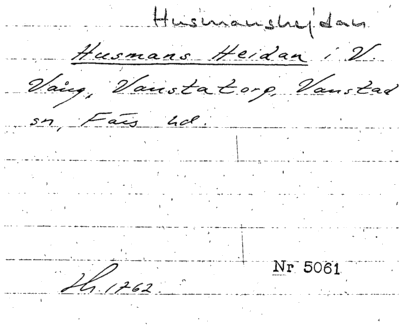 Husmanshejdan
Husmans Heidan i V.
Vång, Vanstatorp, Vanstad
sn, Färs hd.
Nr 5061
Lh. 1762.